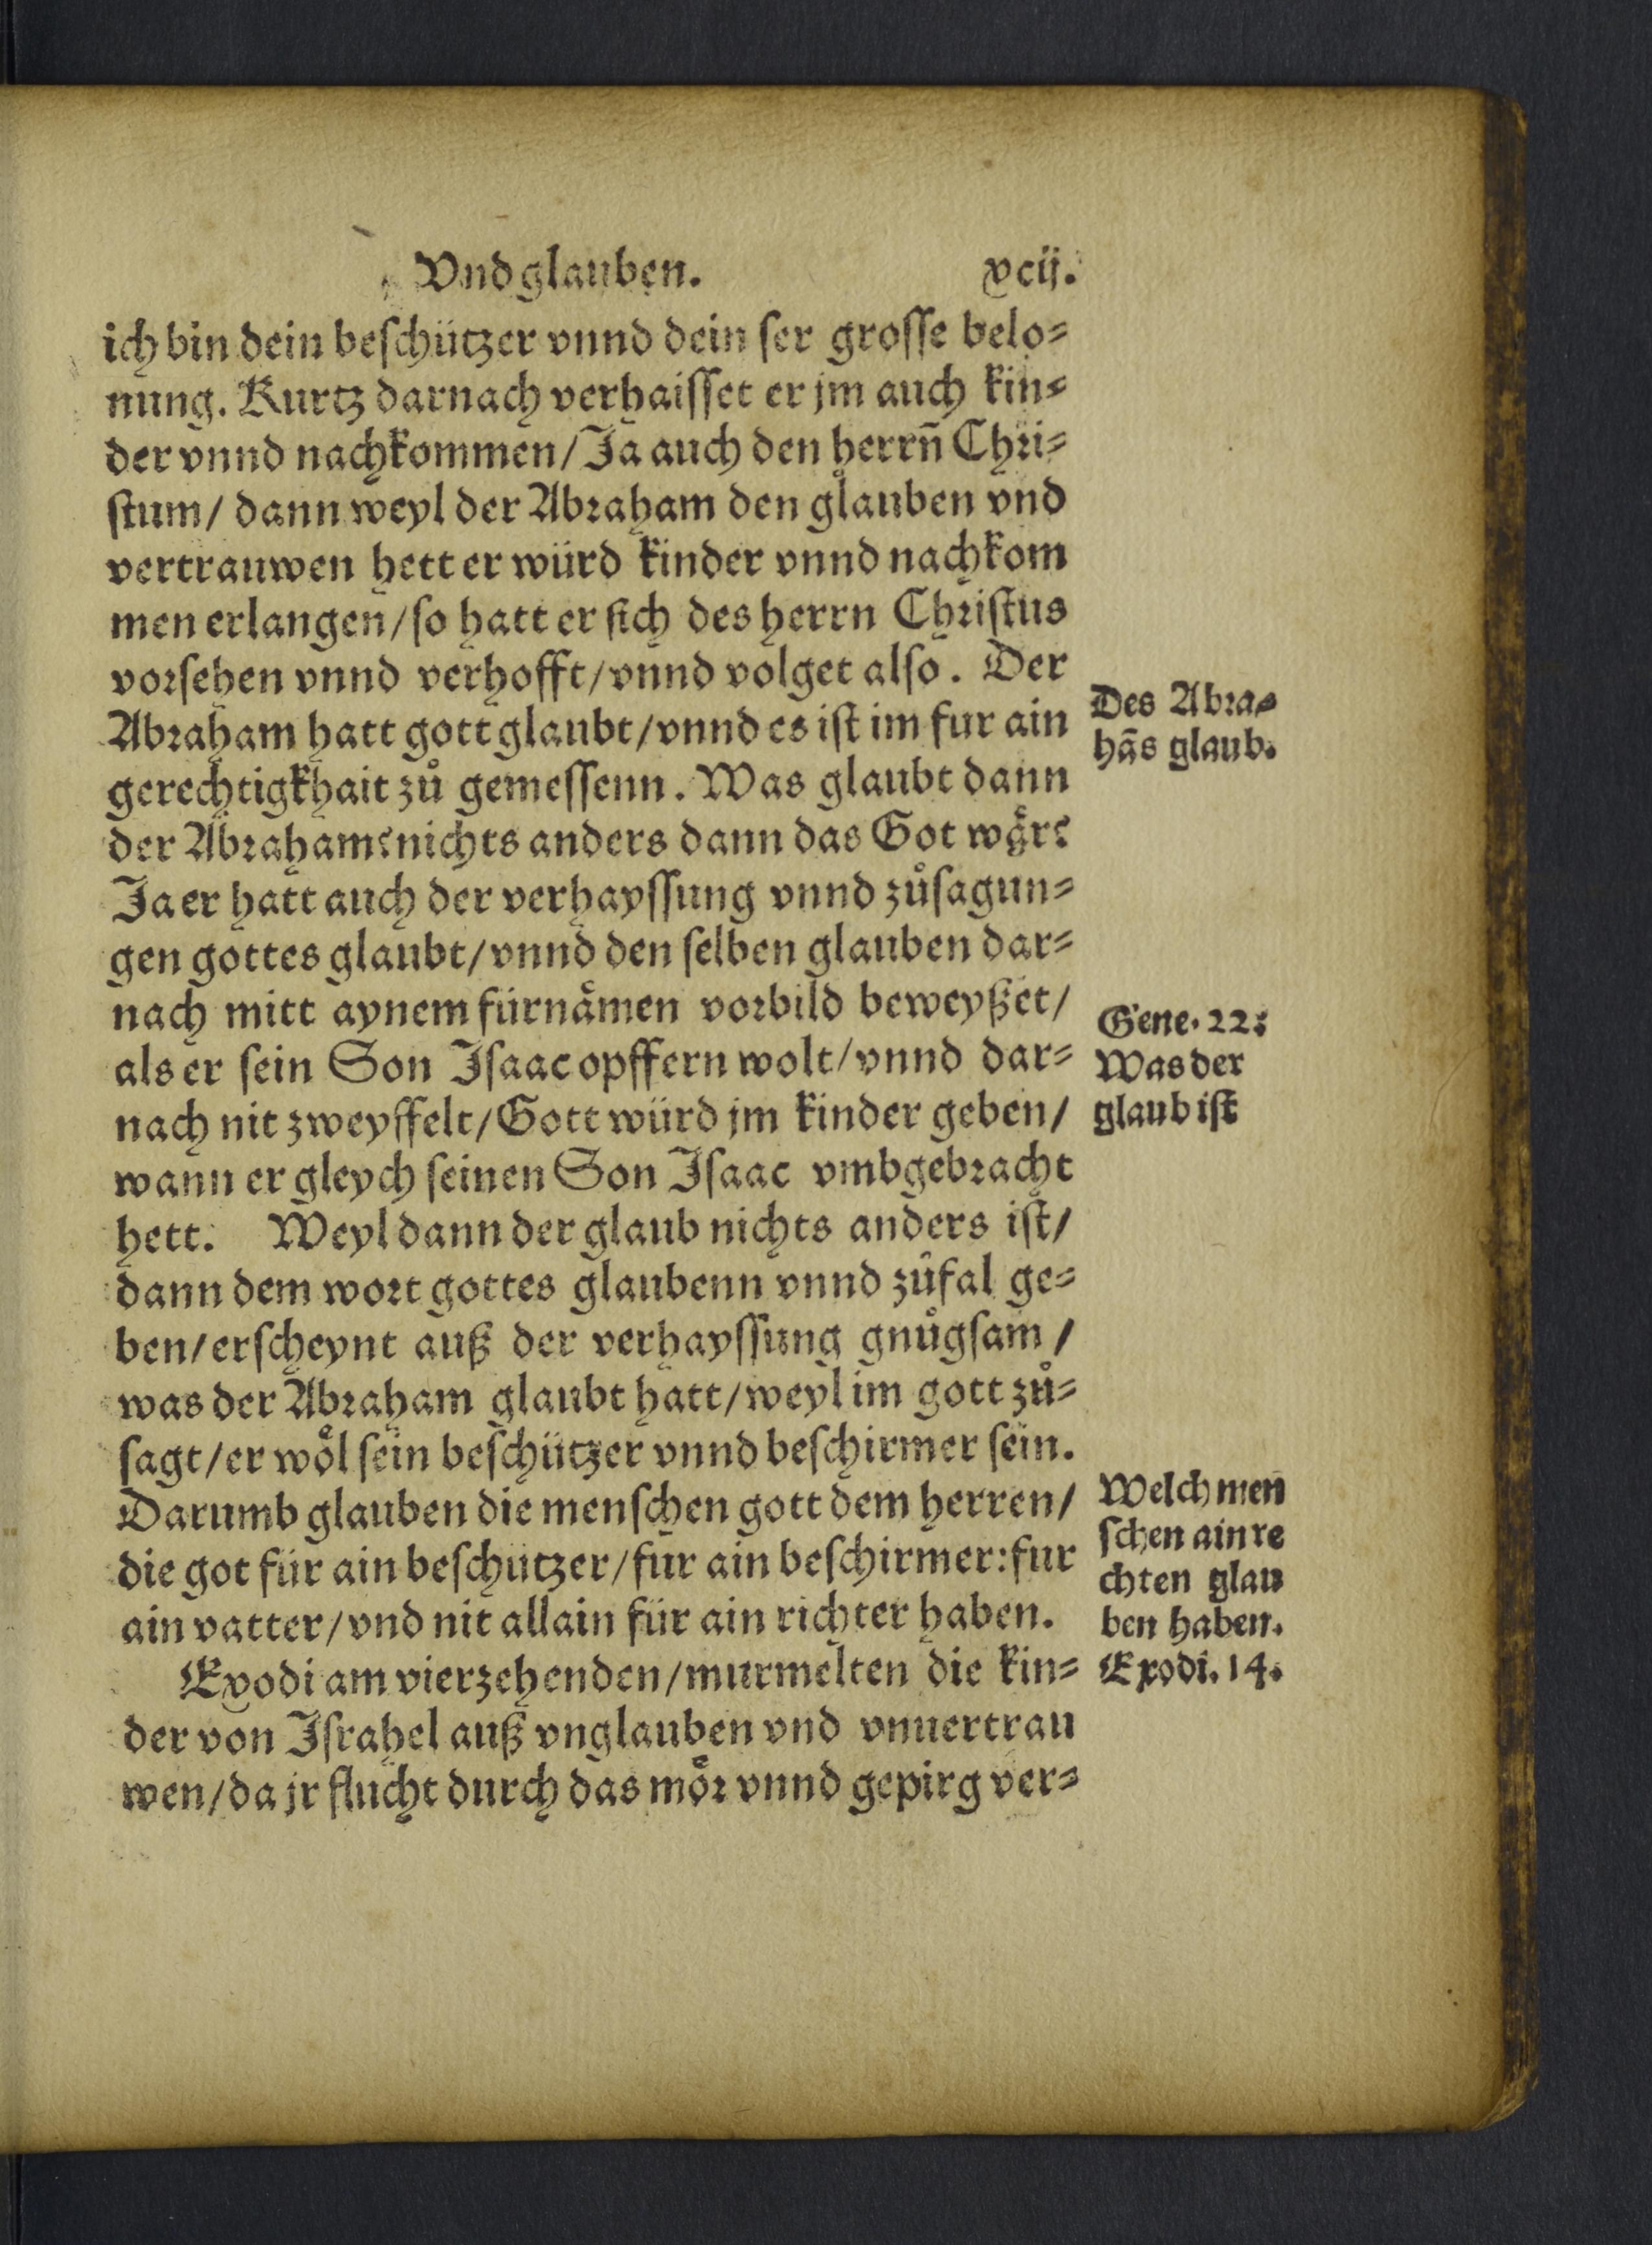 Vnd glauben. xcij.
ich bin dein beſchützer vnnd dein ſer groſſe belo⸗
nung. Kurtz darnach verhaiſſet er jm auch kin⸗
der vnnd nachkommen/ Ja auch den herrn̄ Chri⸗
ſtum/ dann weyl der Abraham den glauben vnd
vertrauwen hett er würd kinder vnnd nachkom
men erlangen/ ſo hatt er ſich des herrn Chriſtus
vorſehen vnnd verhofft/ vnnd volget alſo. Der
Abraham hatt gott glaubt/ vnnd es iſt im fur ain
gerechtigkhait zů gemeſſenn. Was glaubt dann
der Abraham? nichts anders dann das Got wåre?
Ja er hatt auch der verhayſſung vnnd zůſagun⸗
gen gottes glaubt/ vnnd den ſelben glauben dar⸗
nach mitt aynem fürnaͤmen vorbild beweyßet/
als er ſein Son Iſaac opffern wolt/ vnnd dar⸗
nach nit zweyffelt/ Gott würd jm kinder geben/
wann er gleych ſeinen Son Iſaac vmbgebracht
hett. Weyl dann der glaub nichts anders iſt/
dann dem wort gottes glaubenn vnnd zůfal ge⸗
ben/ erſcheynt auß der verhayſſung gnůgſam/
was der Abraham glaubt hatt/ weyl im gott zů⸗
ſagt/ er woͤl ſein beſchützer vnnd beſchirmer ſein.
Darumb glauben die menſchen gott dem herren/
die got für ain beſchützer/ für ain beſchirmer: fur
ain vatter/ vnd nit allain für ain richter haben.
Exodi am vierzehenden/ murmelten die kin⸗
der von Iſrahel auß vnglauben vnd vnuertrau
wen/ da jr flucht durch das moͤr vnnd gepirg ver⸗
Des Abra⸗
hās glaub.
Gene. 22.
Was der
glaub iſt
Welch men
ſchen ain re
chten glau
ben haben.
Exodi. 14.